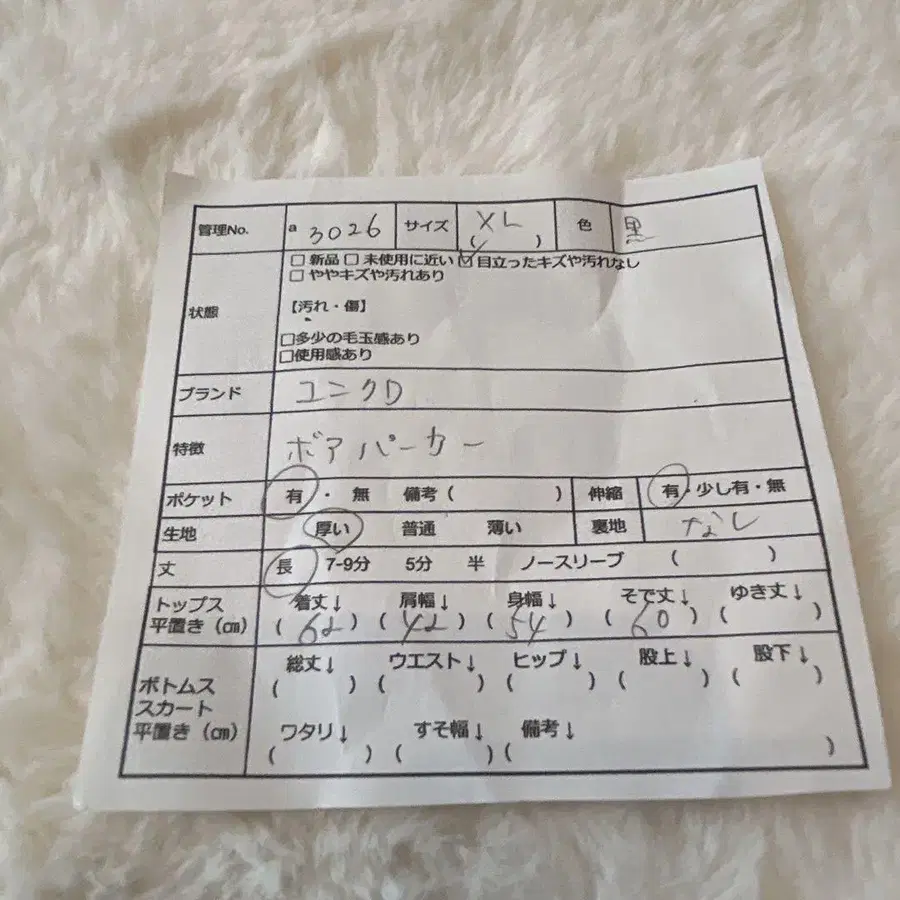 管理No. a 3026 サイズ XL ( ) 色 黒
□ 新品 □ 未使用に近い ☑ 目立ったキズや汚れなし
□ ややキズや汚れあり
状態
【汚れ・傷】
□多少の毛玉感あり
□使用感あり
ブランド ユニクロ
特徴 ボアパーカー
ポケット 有 ・ 無 備考 ( ) 伸縮 有・少し有・無
生地 厚い 普通 薄い 裏地 なし
丈 長 7-9分 5分 半 ノースリーブ ( )
トップス 着丈↓ 肩幅↓ 身幅↓ そで丈↓ ゆき丈↓
平置き(㎝) (62) (42) (54) (60) ( )
総丈↓ ウエスト↓ ヒップ↓ 股上↓ 股下↓
ボトムス ( ) ( ) ( ) ( ) ( )
スカート
平置き(㎝) ワタリ↓ すそ幅↓ 備考↓
( ) ( ) ( )